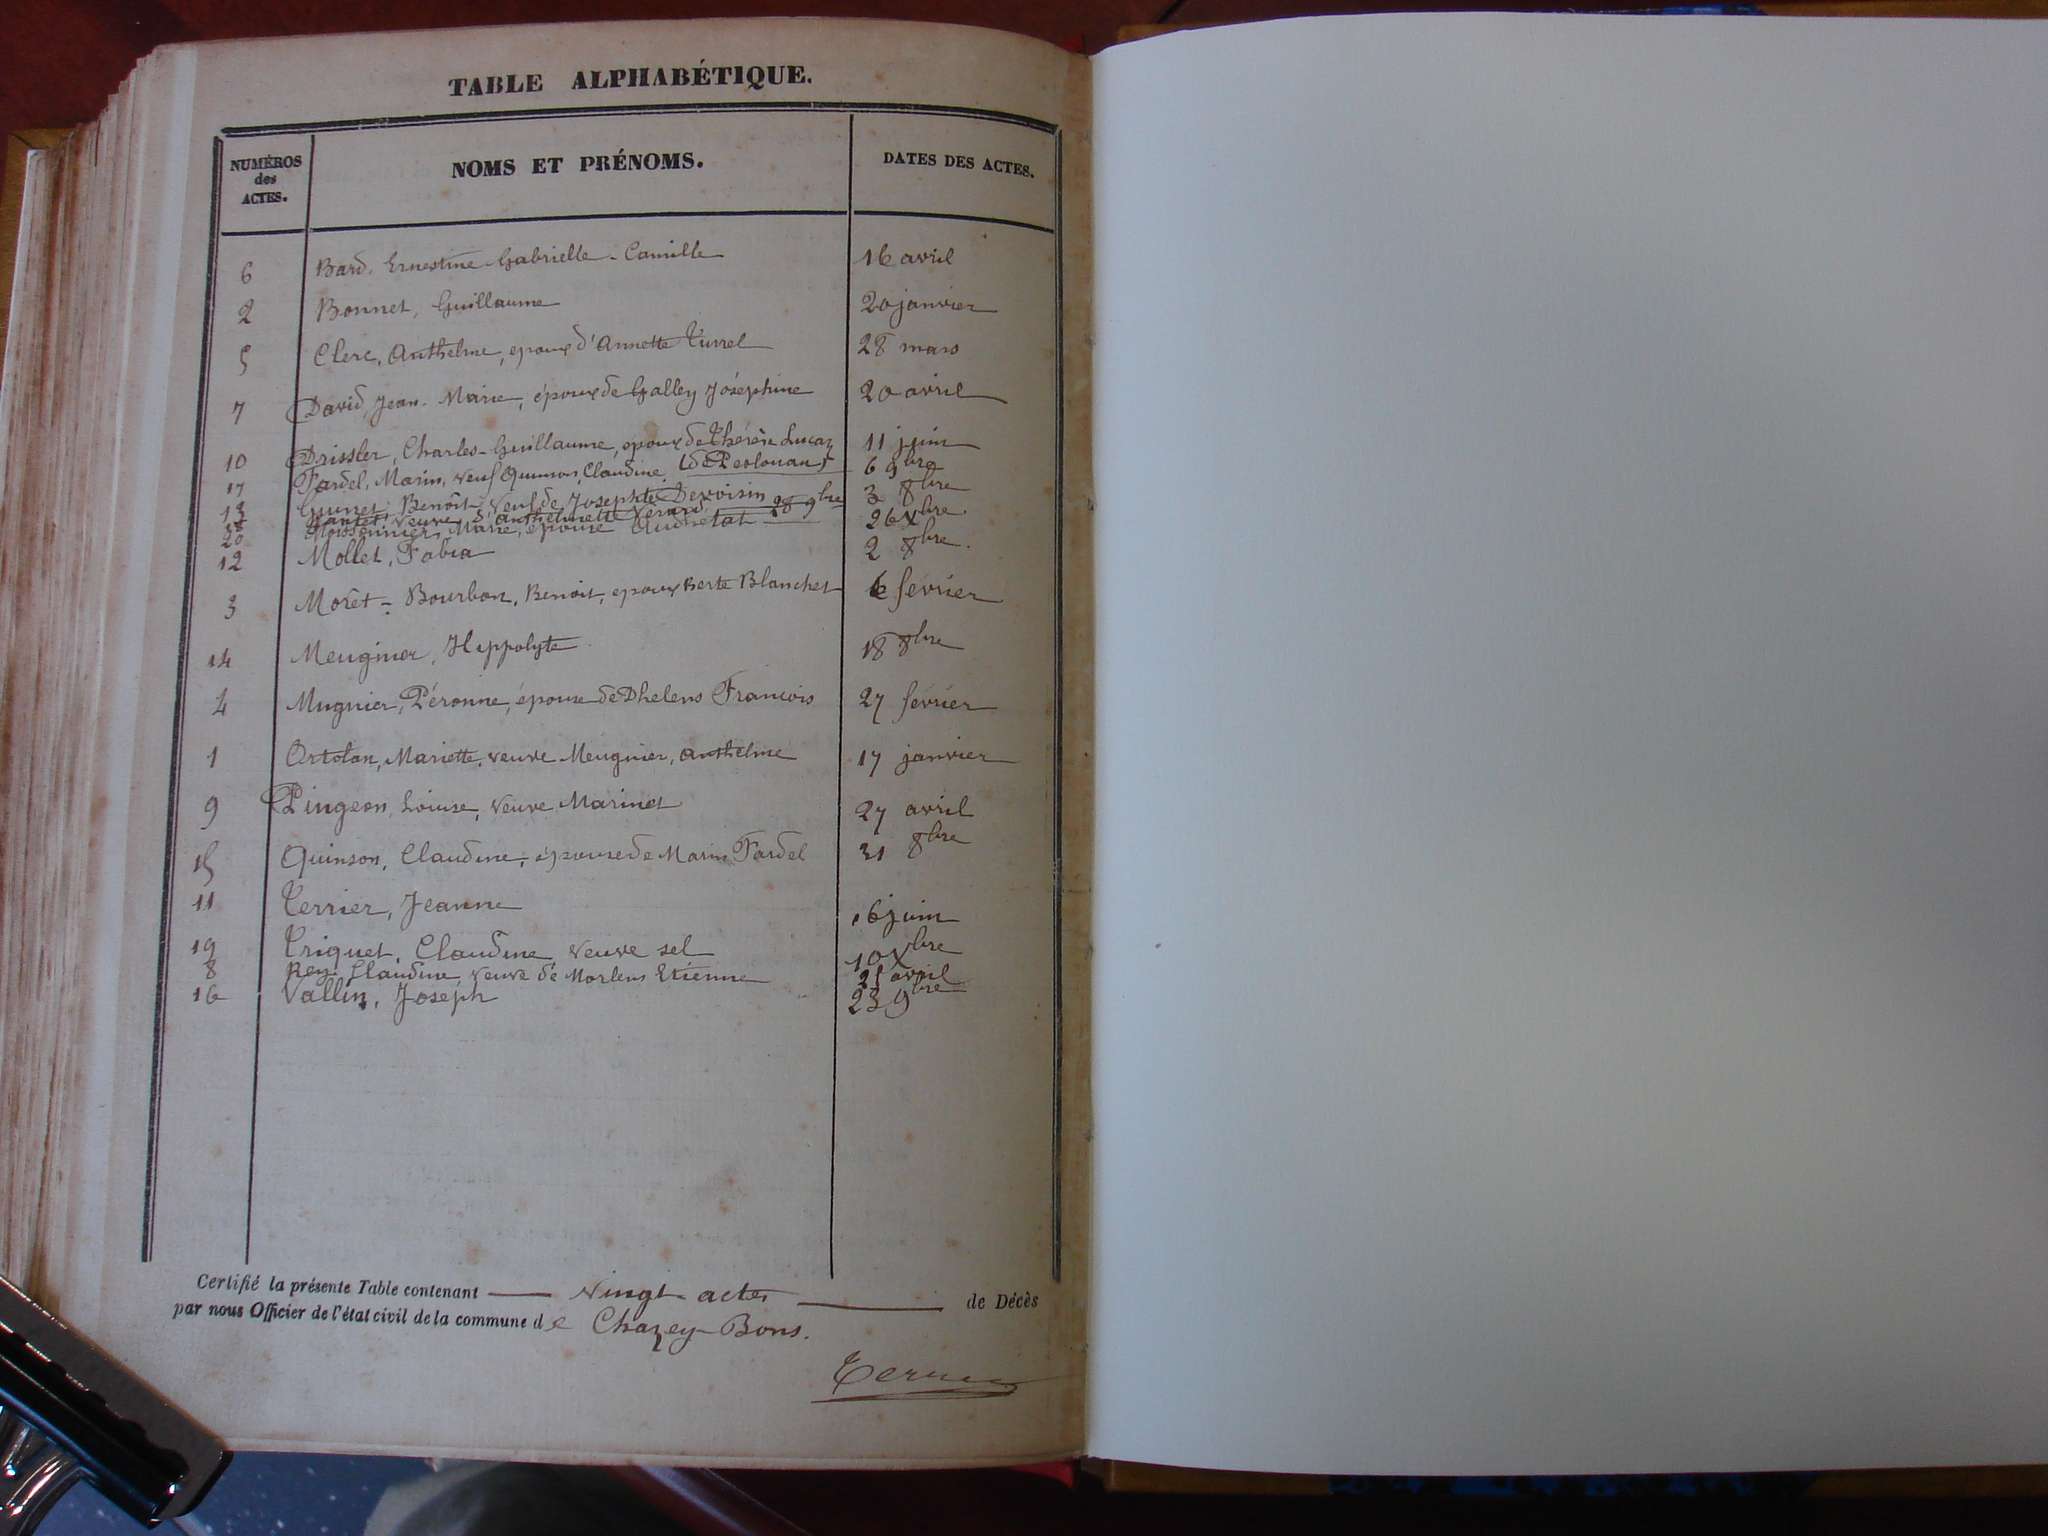 TABLE ALPHABÉTIQUE.
NUMÉROS des ACTES. NOMS ET PRÉNOMS. DATES DES ACTES.
6 Bard, Ernestine Gabrielle - Camille 16 avril
2 Bonnet, Guillaume 20 janvier
5 Clerc, Anthelme, epoux d'Annette Turrel 28 mars
7 David, Jean-Marie, époux de Galley Joséphine 20 avril
10 Drissler, Charles-Guillaume, epoux de Thérèse Lucaz 11 juin
17 Fardel, Marin, veuf Quinson, Claudine 6 9bre
13 Benoit, veuf de Josephte Devoisin 3 8bre
veuve d'Anthelmette 28 9bre
20 Moissonnier, Marie, épouse 26 Xbre
12 Mollet, Fabia 2 8bre.
3 Moret-Bourbon, Benoit, epoux Berte Blanchet 6 février
14 Meugnier, Hippolyte 18 8bre
4 Mugnier, Péronne, épouse de Dhelens François 27 février
1 Ortolan, Mariette, veuve Meugnier, Anthelme 17 janvier
9 Pingeon, Louise, veuve Marinet 27 avril
15 Quinson, Claudine, épouse de Marin Fardel 31 8bre
11 Terrier, Jeanne 16 juin
19 Triquet, Claudine veuve sel 10 Xbre
8 Rey Claudine, veuve de Morlens Etienne 21 avril
16 Vallin, Joseph 23 9bre
Certifié la présente Table contenant vingt actes de Décès
par nous Officier de l'état civil de la commune de Chazey-Bons.